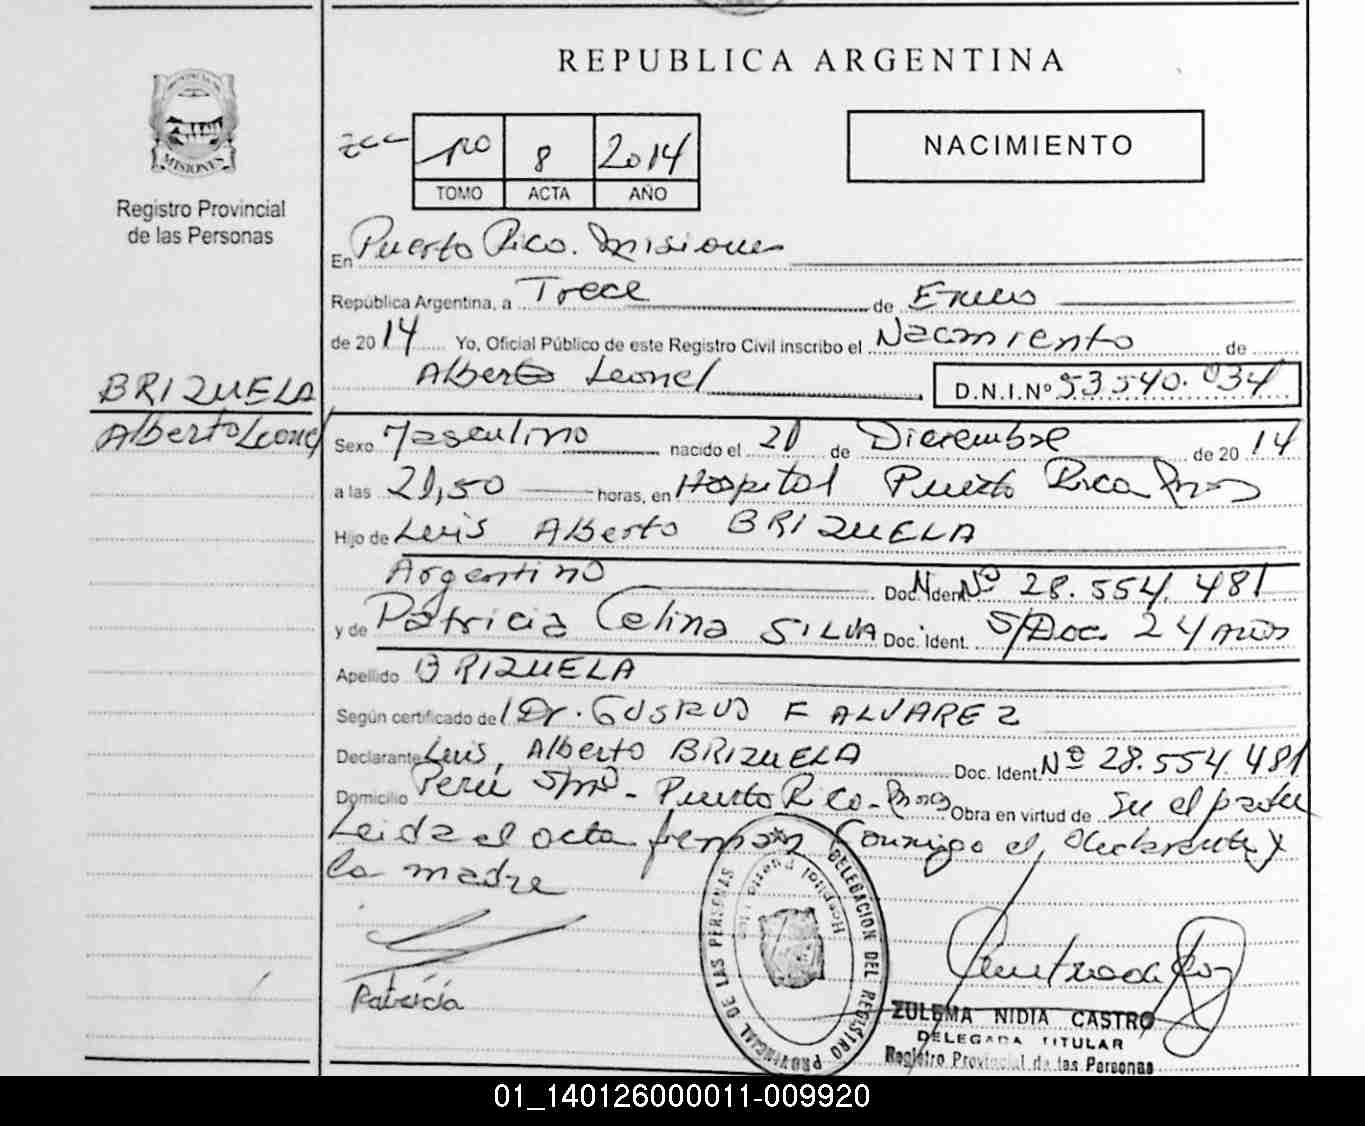 REPUBLICA ARGENTINA
MISIONES
Registro Provincial
de las Personas
1º 8 2014
TOMO ACTA AÑO
NACIMIENTO
En Puerto Rico. Misiones
República Argentina, a Trece de Enero
de 2014 Yo, Oficial Público de este Registro Civil inscribo el Nacimiento de
Alberto Leonel D.N.I.Nº 53540.034
BRIZUELA
Alberto Leonel
Sexo Masculino nacido el 20 de Diciembre de 2014
a las 21,50 horas, en Hospital Puerto Rico Mnes
Hijo de Luis Alberto BRIZUELA
Argentino Doc. Ident. Nº 28.554.481
y de Patricia Celina SILVA Doc. Ident. S/Doc. 24 años
Apellido BRIZUELA
Según certificado del Dr. GUSTAVO F ALVAREZ
Declarante Luis Alberto BRIZUELA Doc. Ident Nº 28.554.481
Domicilio Perú S/nº - Puerto Rico - Mnes Obra en virtud de Ser el padre
Leida el acta firman conmigo el declarante y
la madre
Patricia
DELEGACION DEL REGISTRO PROVINCIAL DE LAS PERSONAS
Hospital Puerto Rico
ZULEMA NIDIA CASTRO
DELEGADA TITULAR
Registro Provincial de las Personas
01_140126000011-009920